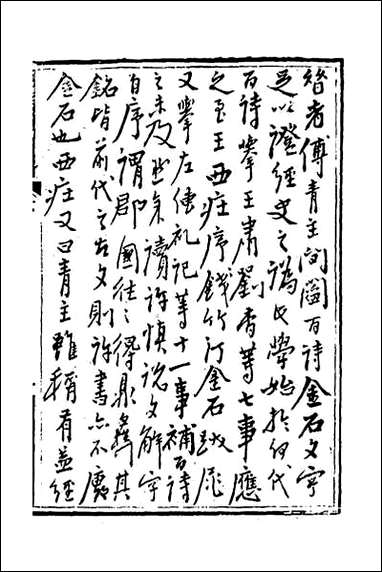 昔者傅青主問閻百詩金石文字
足以證經史之譌其學始於何代
百詩擧王肅劉杳等七事應
之至王西莊序錢竹汀金石跋尾
又擧左傳礼記等十一事補百詩
之未及然余讀許慎説文解字
自序謂郡國徃〻得鼎彝其
銘皆前代之古文則許書亦不廢
金石也西莊又曰青主雖稱有益經